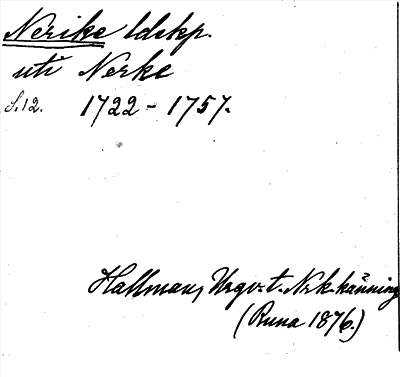 Nerike ldskp.
uti Nerke
S. 12. 1722 - 1757.
Hallman, Urgv. t. Nrk. känning
(Runa 1876.)